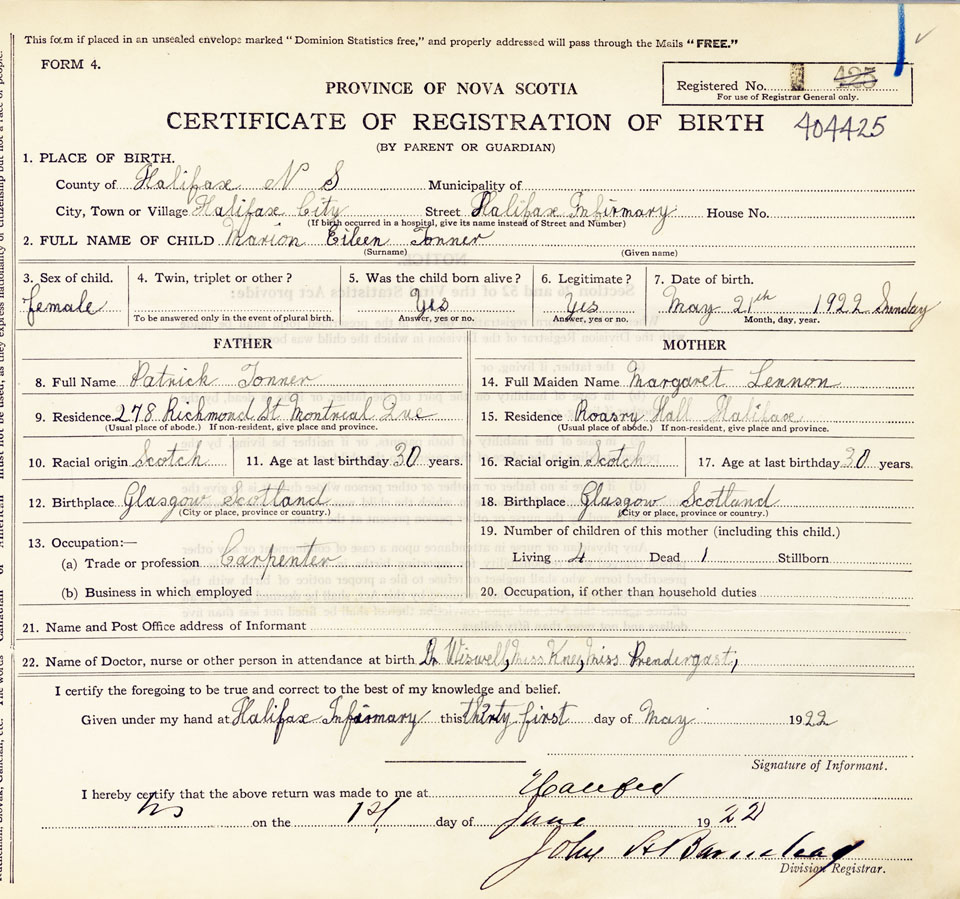 This form if placed in an unsealed envelope marked "Dominion Statistics free," and properly addressed will pass through the Mails "FREE."
FORM 4.
PROVINCE OF NOVA SCOTIA
Registered No. 425
For use of Registrar General only.
CERTIFICATE OF REGISTRATION OF BIRTH 404425
(BY PARENT OR GUARDIAN)
1. PLACE OF BIRTH.
County of Halifax N S Municipality of
City, Town or Village Halifax City Street Halifax Infirmary House No.
(If birth occurred in a hospital, give its name instead of Street and Number)
2. FULL NAME OF CHILD Marion Eileen Tonner
(Surname) (Given name)
3. Sex of child. 4. Twin, triplet or other? 5. Was the child born alive? 6. Legitimate? 7. Date of birth.
female Yes Yes May 21th 1922 Sunday
To be answered only in the event of plural birth. Answer, yes or no. Answer, yes or no. Month, day, year.
FATHER MOTHER
8. Full Name Patrick Tonner 14. Full Maiden Name Margaret Lennon
9. Residence 278 Richmond St Montrial Que 15. Residence Roasry Hall Halifax
(Usual place of abode.) If non-resident, give place and province. (Usual place of abode.) If non-resident, give place and province.
10. Racial origin Scotch 11. Age at last birthday 30 years. 16. Racial origin Scotch 17. Age at last birthday 30 years.
12. Birthplace Glasgow Scotland 18. Birthplace Glasgow Scotland
(City or place, province or country.) (City or place, province or country.)
13. Occupation:— 19. Number of children of this mother (including this child.)
(a) Trade or profession Carpenter Living 4 Dead 1 Stillborn
(b) Business in which employed 20. Occupation, if other than household duties
21. Name and Post Office address of Informant
22. Name of Doctor, nurse or other person in attendance at birth Dr Wiswell, Miss Miss Prendergast,
I certify the foregoing to be true and correct to the best of my knowledge and belief.
Given under my hand at Halifax Infirmary this thirty first day of May 1922
Signature of Informant.
I hereby certify that the above return was made to me at Halifax
NS on the day of June 1922
John A Barnstead
Division Registrar.